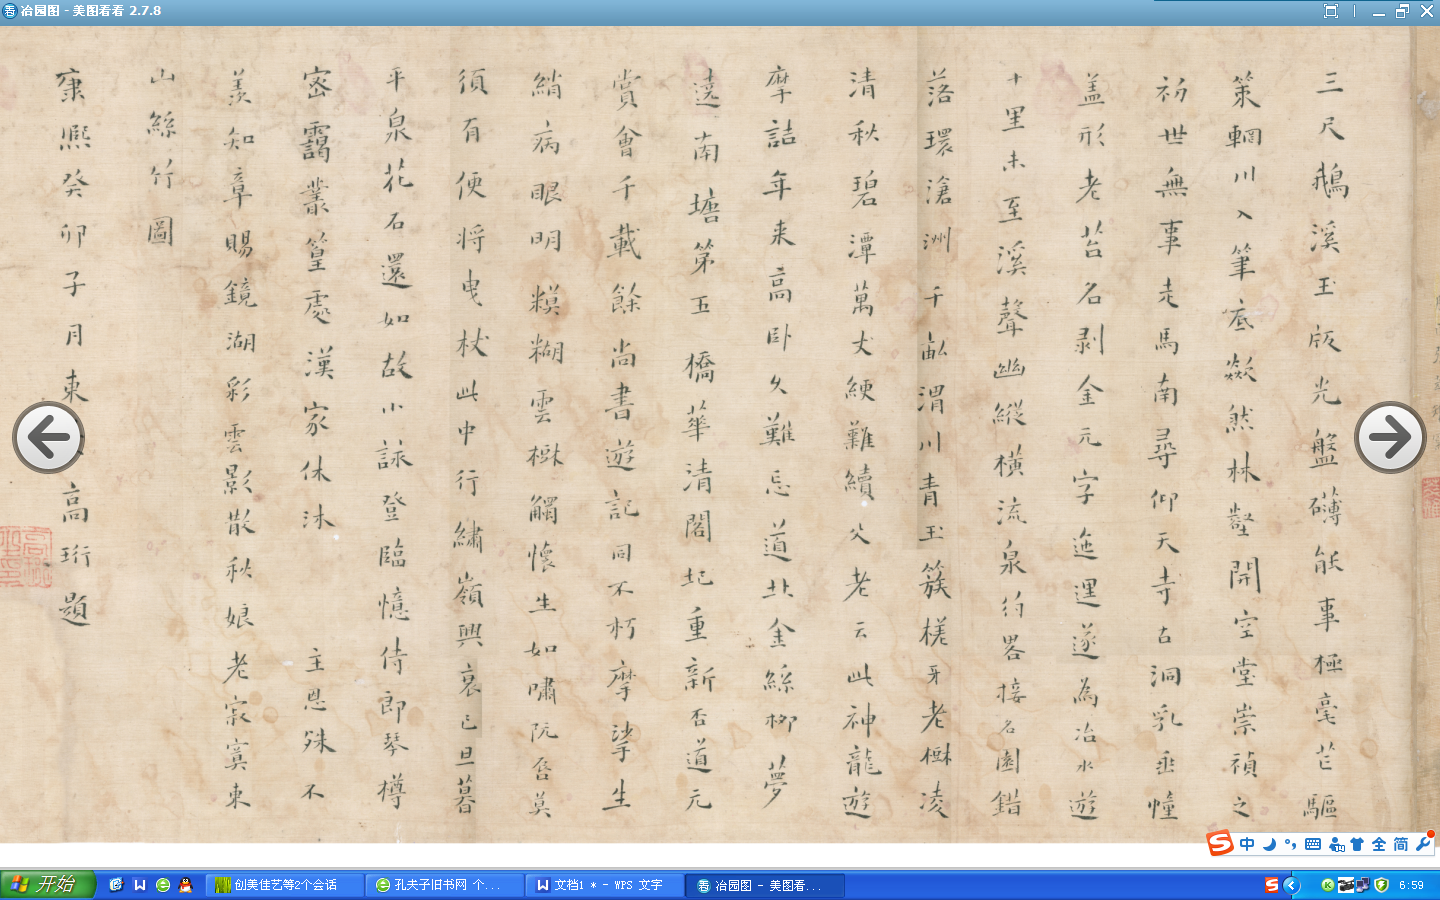 冶园图 - 美图看看 2.7.8
三尺鵝溪玉版光盤礴能事極毫芒驅
策輞川入筆底歘然林壑開空堂崇禎之
初世無事走馬南尋仰天寺古洞乳垂幢
盖形老苔名剥金元字迤逕遂為冶水遊
十里未至溪聲幽縱橫流泉約畧接名園錯
落環滄洲千畝渭川青玉簇槎牙老樹凌
清秋碧潭萬丈綆難續父老云此神龍遊
摩詰年来高卧久難忘道北金絲柳夢
遶南塘第五橋華清閣圮重新否道元
賞會千載餘尚書遊記同不朽摩挲生
綃病眼明糢糊雲樹觸懷生如嘯阮唇莫
須有便將曳杖此中行繡嶺興衰已旦暮
平泉花石還如故小詠登臨憶侍郎琴樽
密靄叢篁處漢家休沐主恩殊不
羨知章賜鏡湖彩雲影散秋娘老寂寞東
山絲竹圖
康熙癸卯子月東高珩題
中 全 简
开始
创美佳艺等2个会话
孔夫子旧书网 个...
文档1 * - WPS 文字
冶园图 - 美图看...
6:59